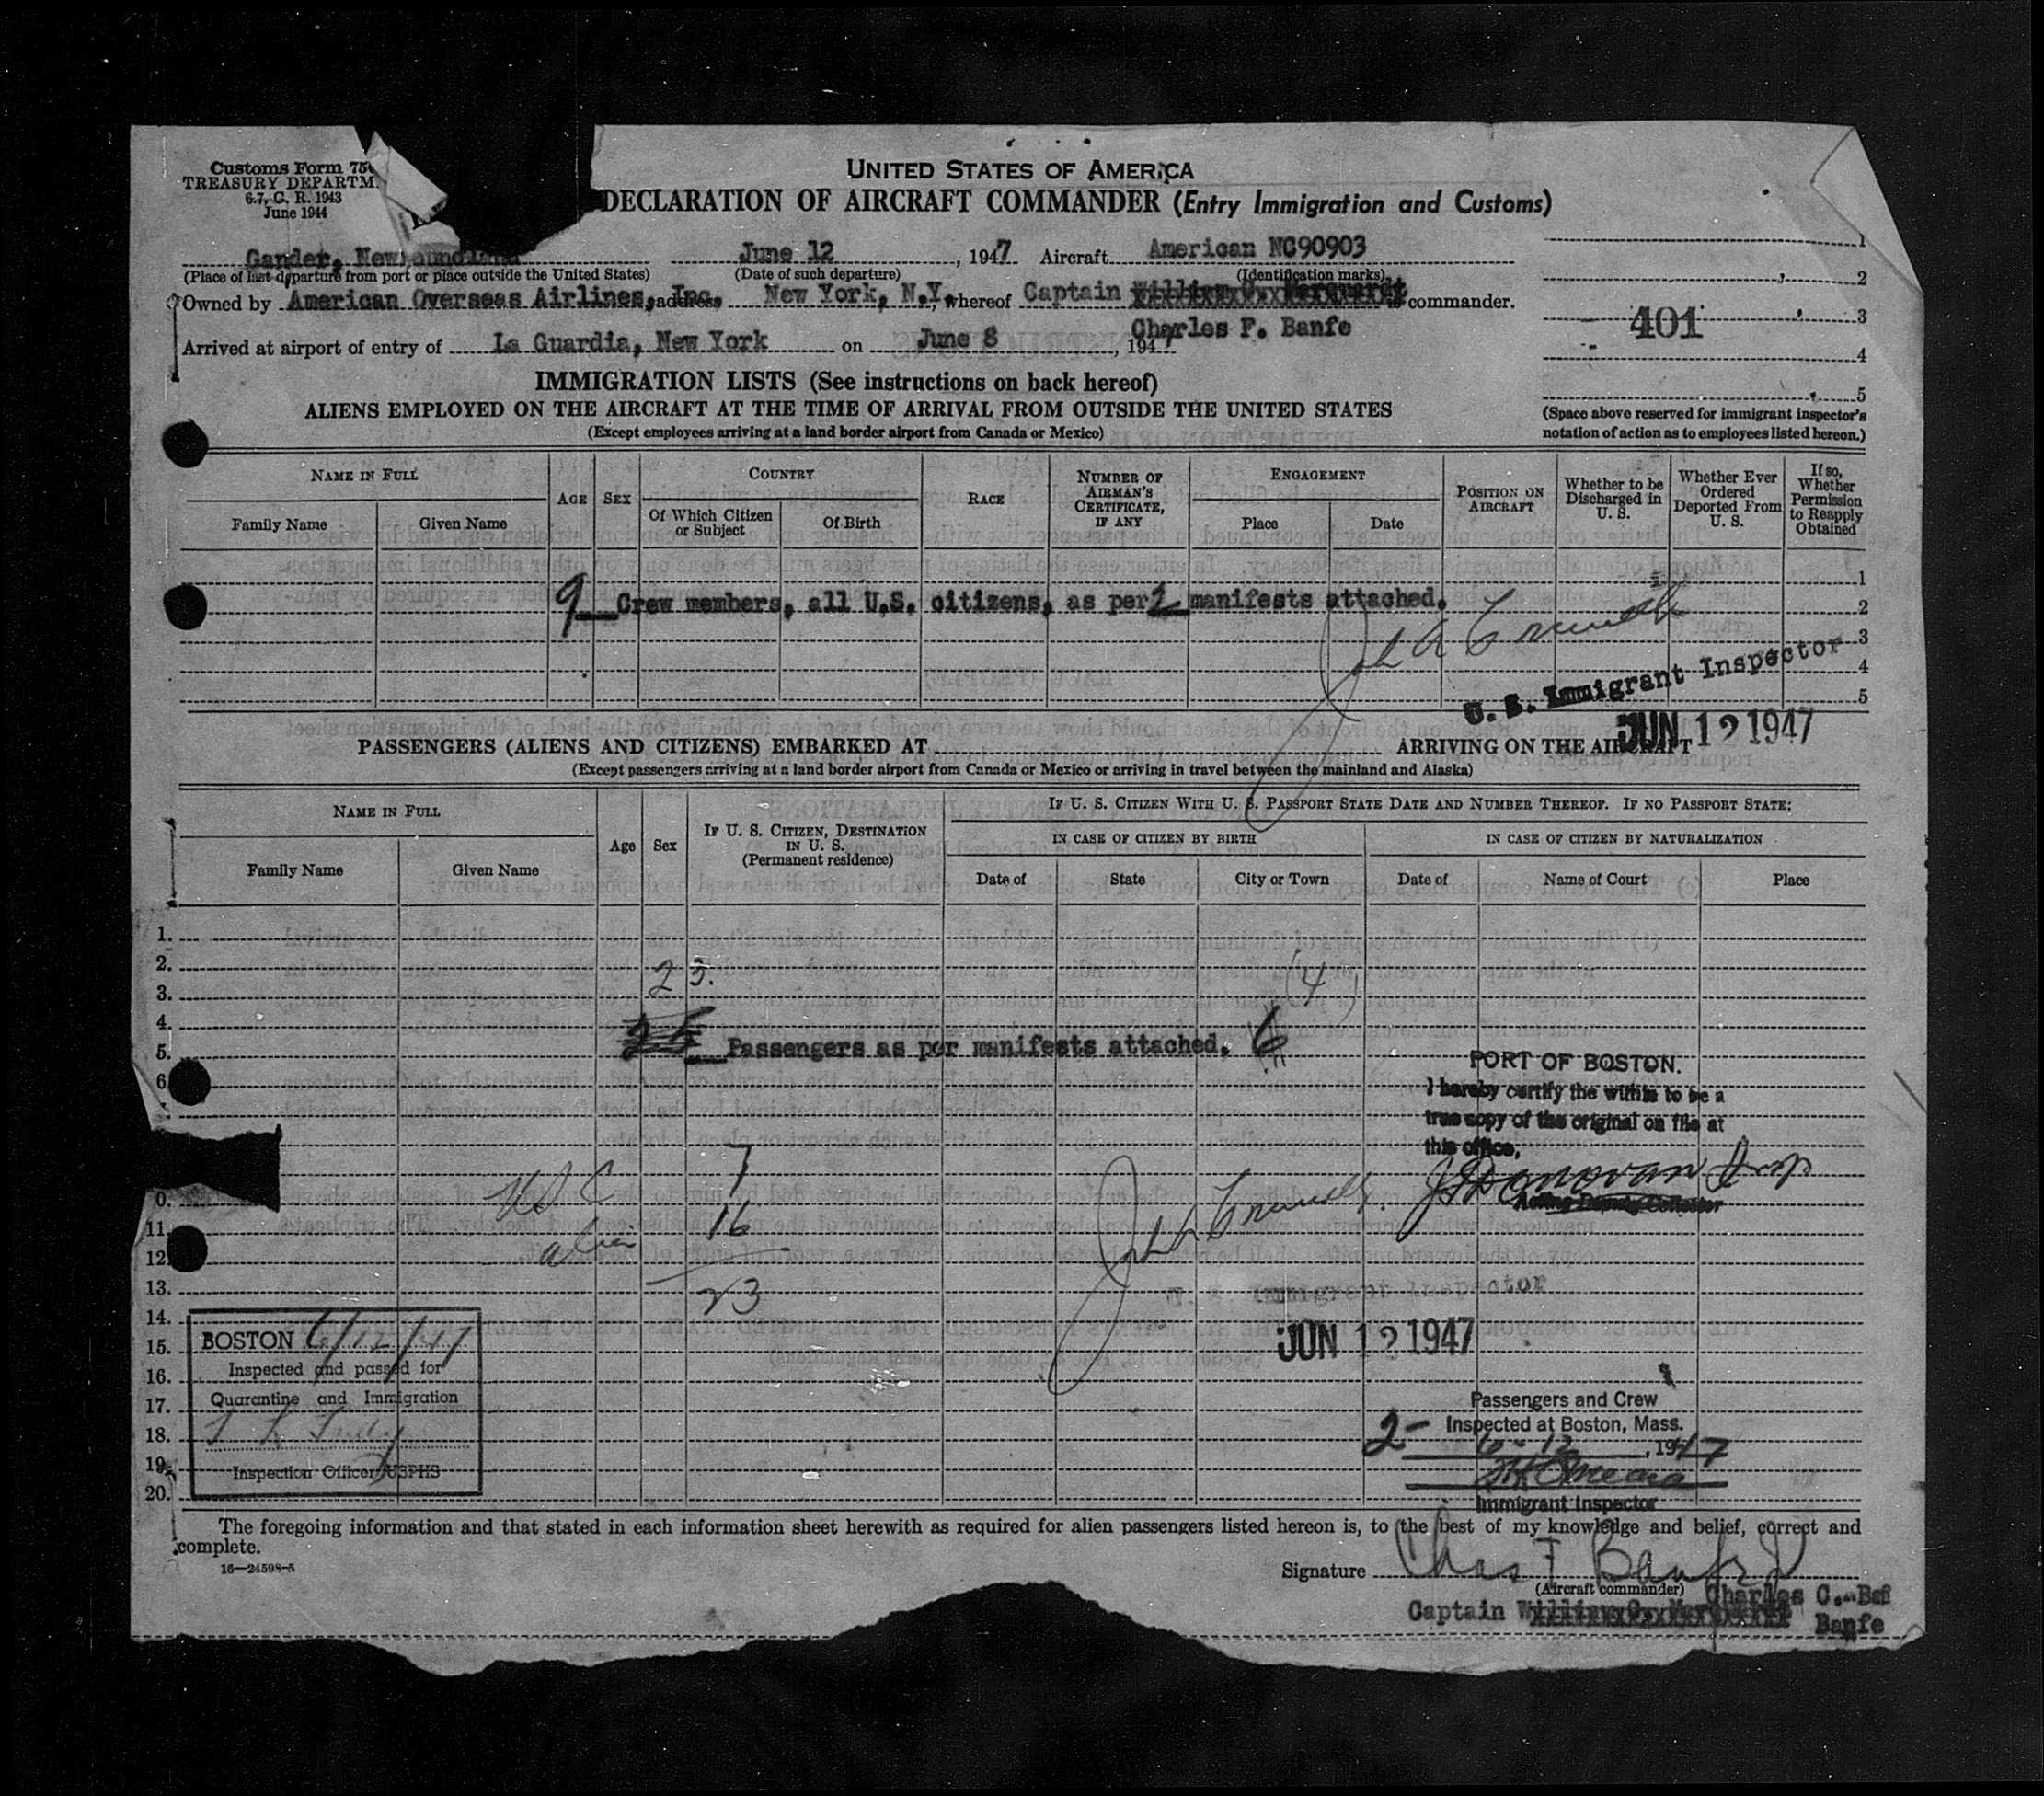 Customs Form 750
TREASURY DEPARTM
6.7, C. R. 1943
June 1944
UNITED STATES OF AMERICA
DECLARATION OF AIRCRAFT COMMANDER (Entry Immigration and Customs)
Gander, Newfoundland June 12, 1947 Aircraft American NC90903
(Place of last departure from port or place outside the United States) (Date of such departure) (Identification marks)
Owned by American Overseas Airlines, Inc. address New York, N.Y. whereof Captain William commander.
Charles F. Banfe
Arrived at airport of entry of La Guardia, New York on June 8, 194
401
1
2
3
4
5
(Space above reserved for immigrant inspector's notation of action as to employees listed hereon.)
IMMIGRATION LISTS (See instructions on back hereof)
ALIENS EMPLOYED ON THE AIRCRAFT AT THE TIME OF ARRIVAL FROM OUTSIDE THE UNITED STATES
(Except employees arriving at a land border airport from Canada or Mexico)
NAME IN FULL
Family Name Given Name
AGE SEX
COUNTRY
Of Which Citizen or Subject Of Birth
RACE
NUMBER OF AIRMAN'S CERTIFICATE, IF ANY
ENGAGEMENT
Place Date
POSITION ON AIRCRAFT
Whether to be Discharged in U. S.
Whether Ever Ordered Deported From U. S.
If so, Whether Permission to Reapply Obtained
1
2
3
4
5
9 Crew members, all U.S. citizens, as per 2 manifests attached.
U. S. Immigrant Inspector
JUN 12 1947
PASSENGERS (ALIENS AND CITIZENS) EMBARKED AT ARRIVING ON THE AIRCRAFT
(Except passengers arriving at a land border airport from Canada or Mexico or arriving in travel between the mainland and Alaska)
NAME IN FULL
Family Name Given Name
Age Sex
IF U. S. CITIZEN, DESTINATION IN U. S.
(Permanent residence)
IF U. S. CITIZEN WITH U. S. PASSPORT STATE DATE AND NUMBER THEREOF. IF NO PASSPORT STATE:
IN CASE OF CITIZEN BY BIRTH IN CASE OF CITIZEN BY NATURALIZATION
Date of State City or Town Date of Name of Court Place
1.
2.
3.
4.
5.
6
23.
(4)
25 Passengers as per manifests attached. 6
PORT OF BOSTON.
I hereby certify the within to be a
true copy of the original on file at
this office.
J Donovan Insp
Acting Deputy Collector
USC 7
alien 16
23
0.
11.
12.
13.
14.
15.
16.
17.
18.
19.
20.
U. S. Immigrant Inspector
JUN 12 1947
BOSTON 6/12/47
Inspected and passed for
Quarantine and Immigration
Inspection Officer USPHS
Passengers and Crew
2- Inspected at Boston, Mass.
6-12, 1947
Immigrant Inspector
The foregoing information and that stated in each information sheet herewith as required for alien passengers listed hereon is, to the best of my knowledge and belief, correct and
complete.
16—24598-5
Signature Chas F Banfe Jr
(Aircraft commander)
Captain William Charles C. Baf
Banfe